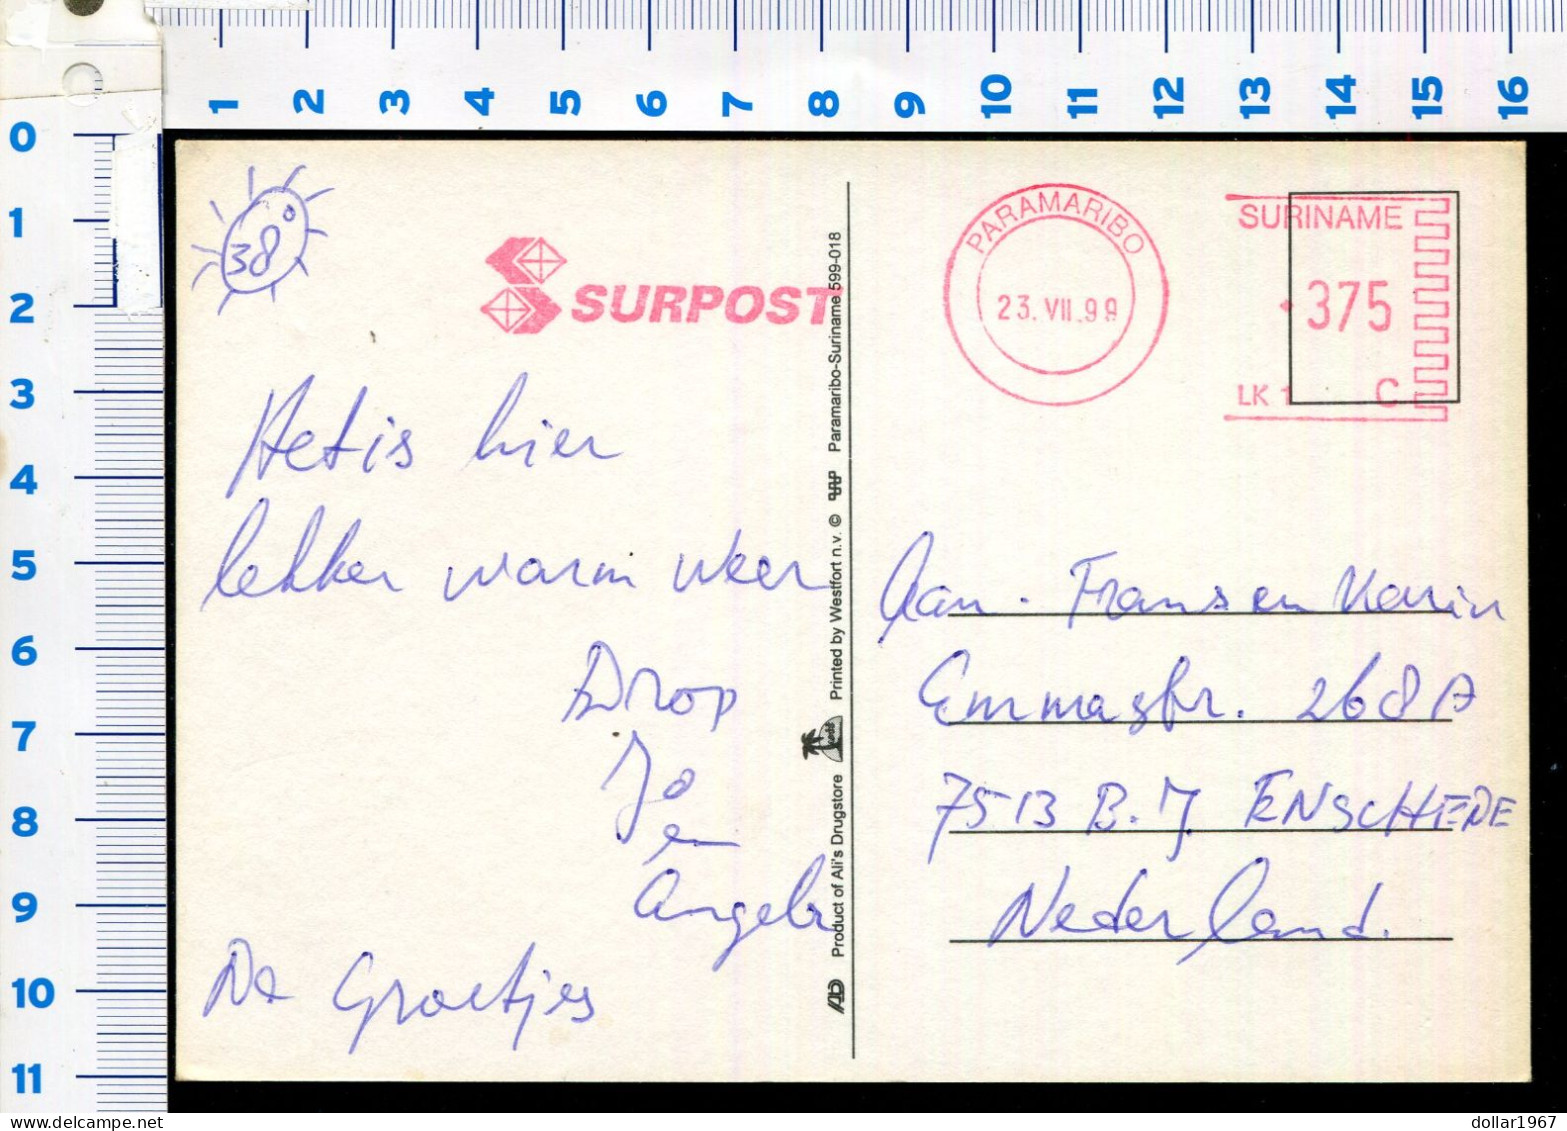 1 2 3 4 5 6 7 8 9 10 11 12 13 14 15 16
0
1
2
3
4
5
6
7
8
9
10
11
38°
SURPOST
PARAMARIBO
23.VII.99
SURINAME
375
LK 1 C
Het is hier
lekker warm weer
Drop
Jo
en
Angela
De Groetjes
AD Product of Ali's Drugstore Printed by Westfort n.v. © Paramaribo-Suriname 599-018
Aan. Frans en Karin
Emmastr. 268A
7513 B.J. ENSCHEDE
Nederland.
dollar1967